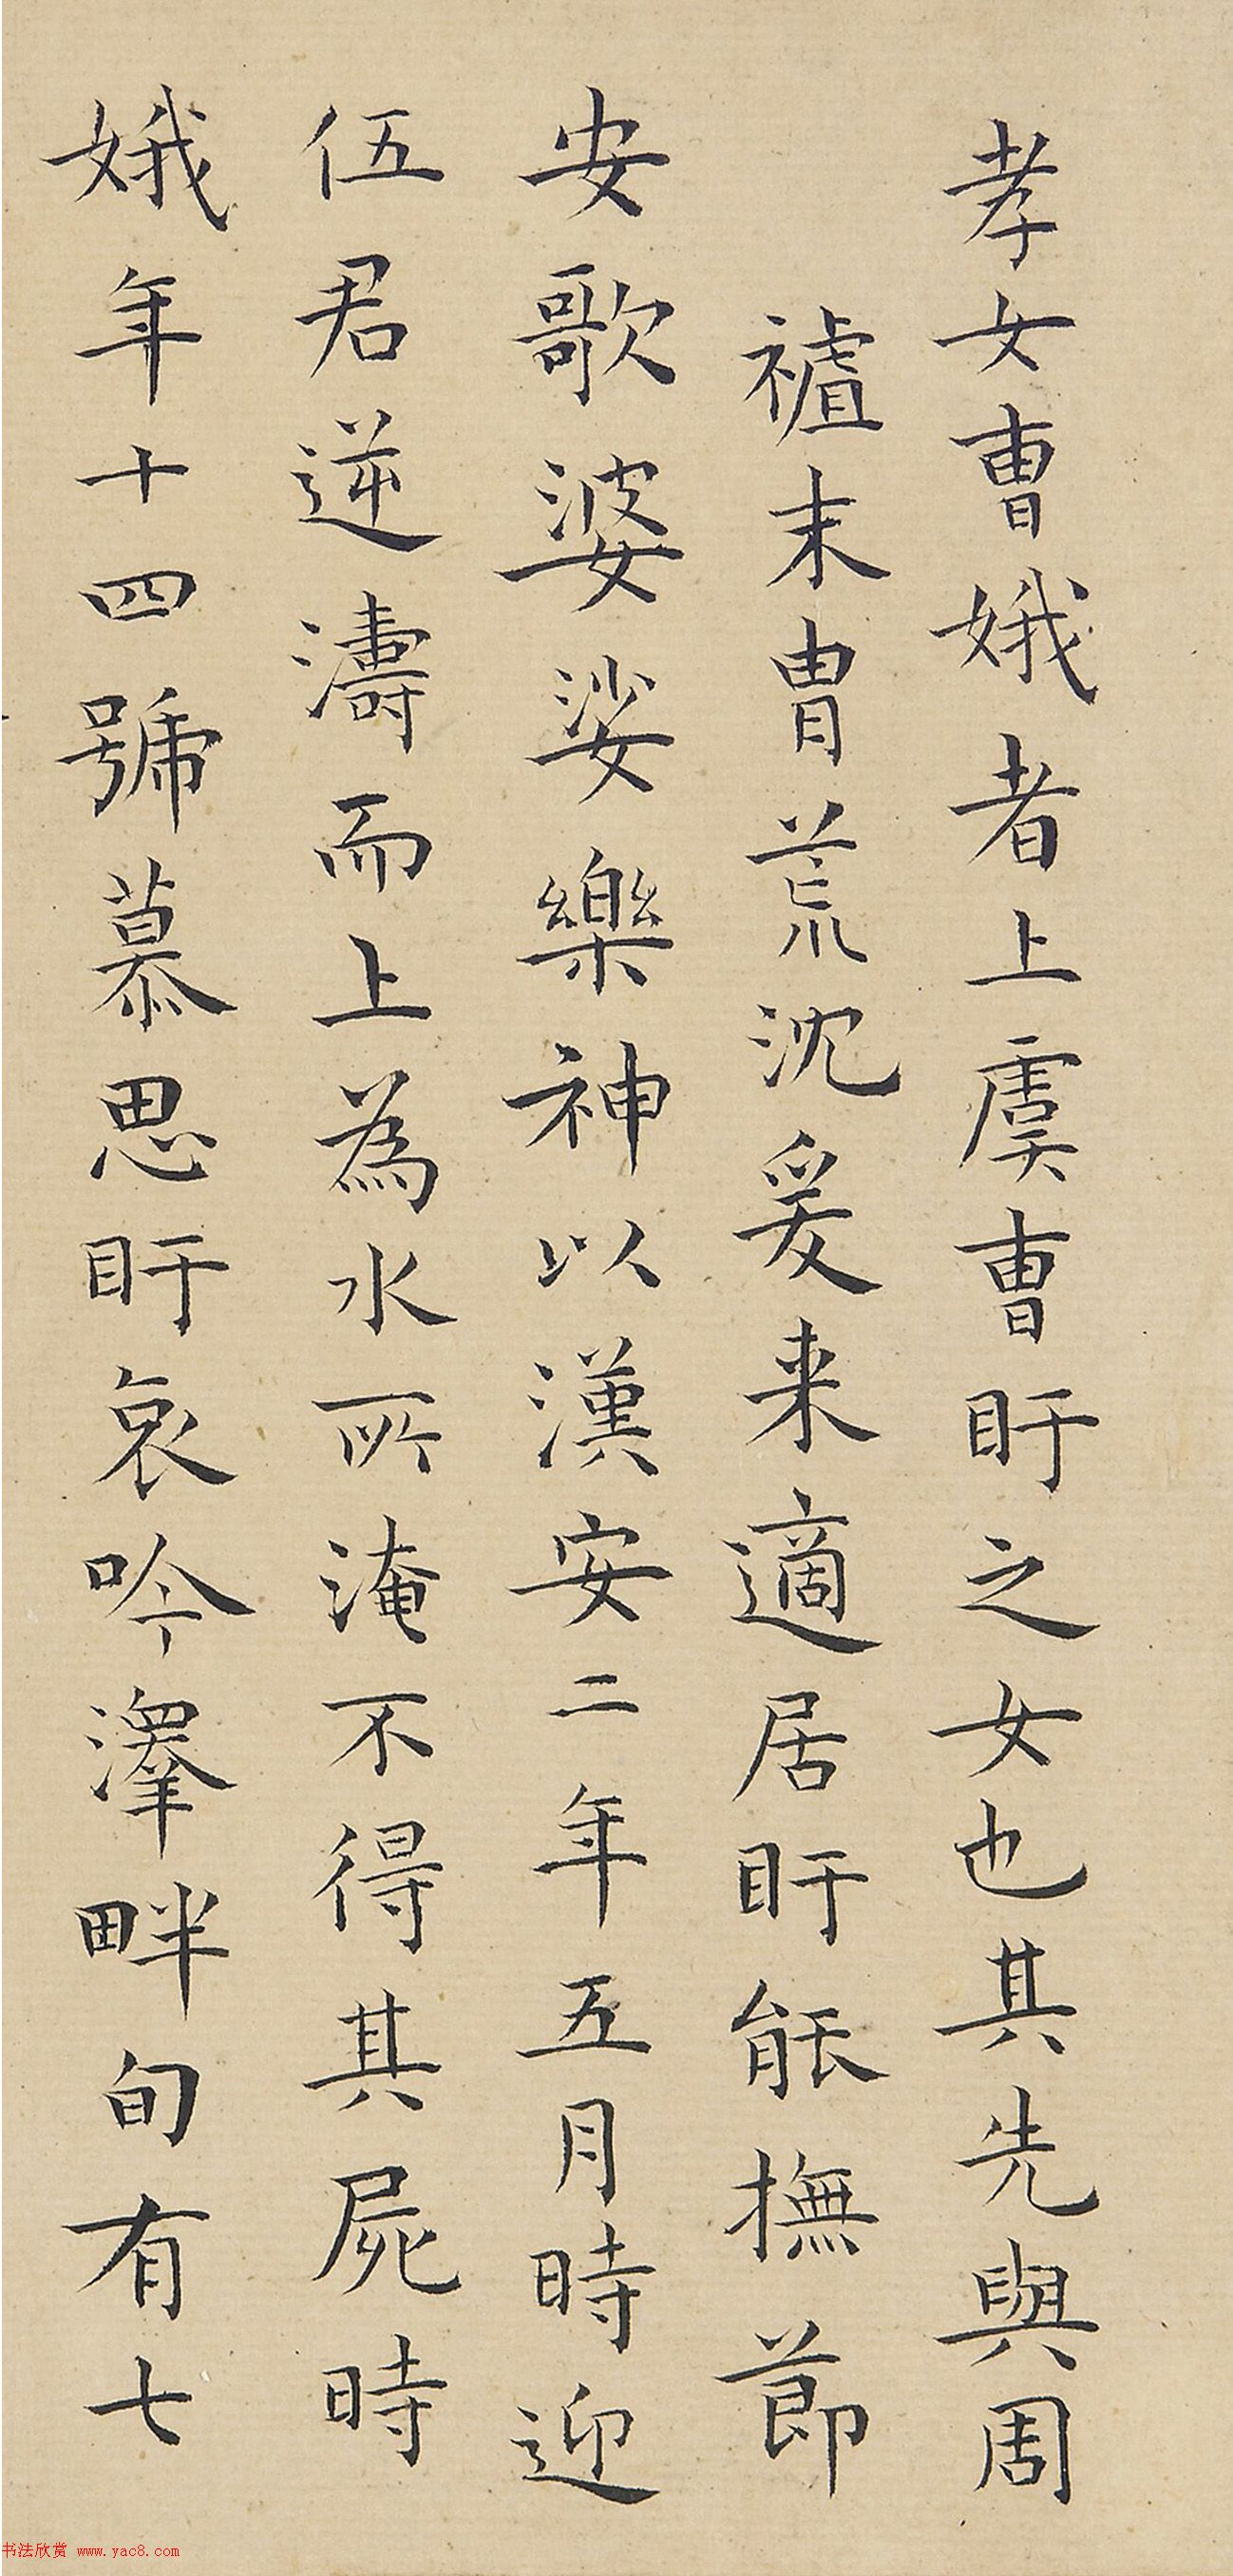 孝女曹娥者上虞曹盱之女也其先與周
禇末胄荒沈爰来適居盱能撫節
安歌婆娑樂神以漢安二年五月時迎
伍君逆濤而上為水所淹不得其屍時
娥年十四號慕思盱哀吟澤畔旬有七
书法欣赏 www.yac8.com